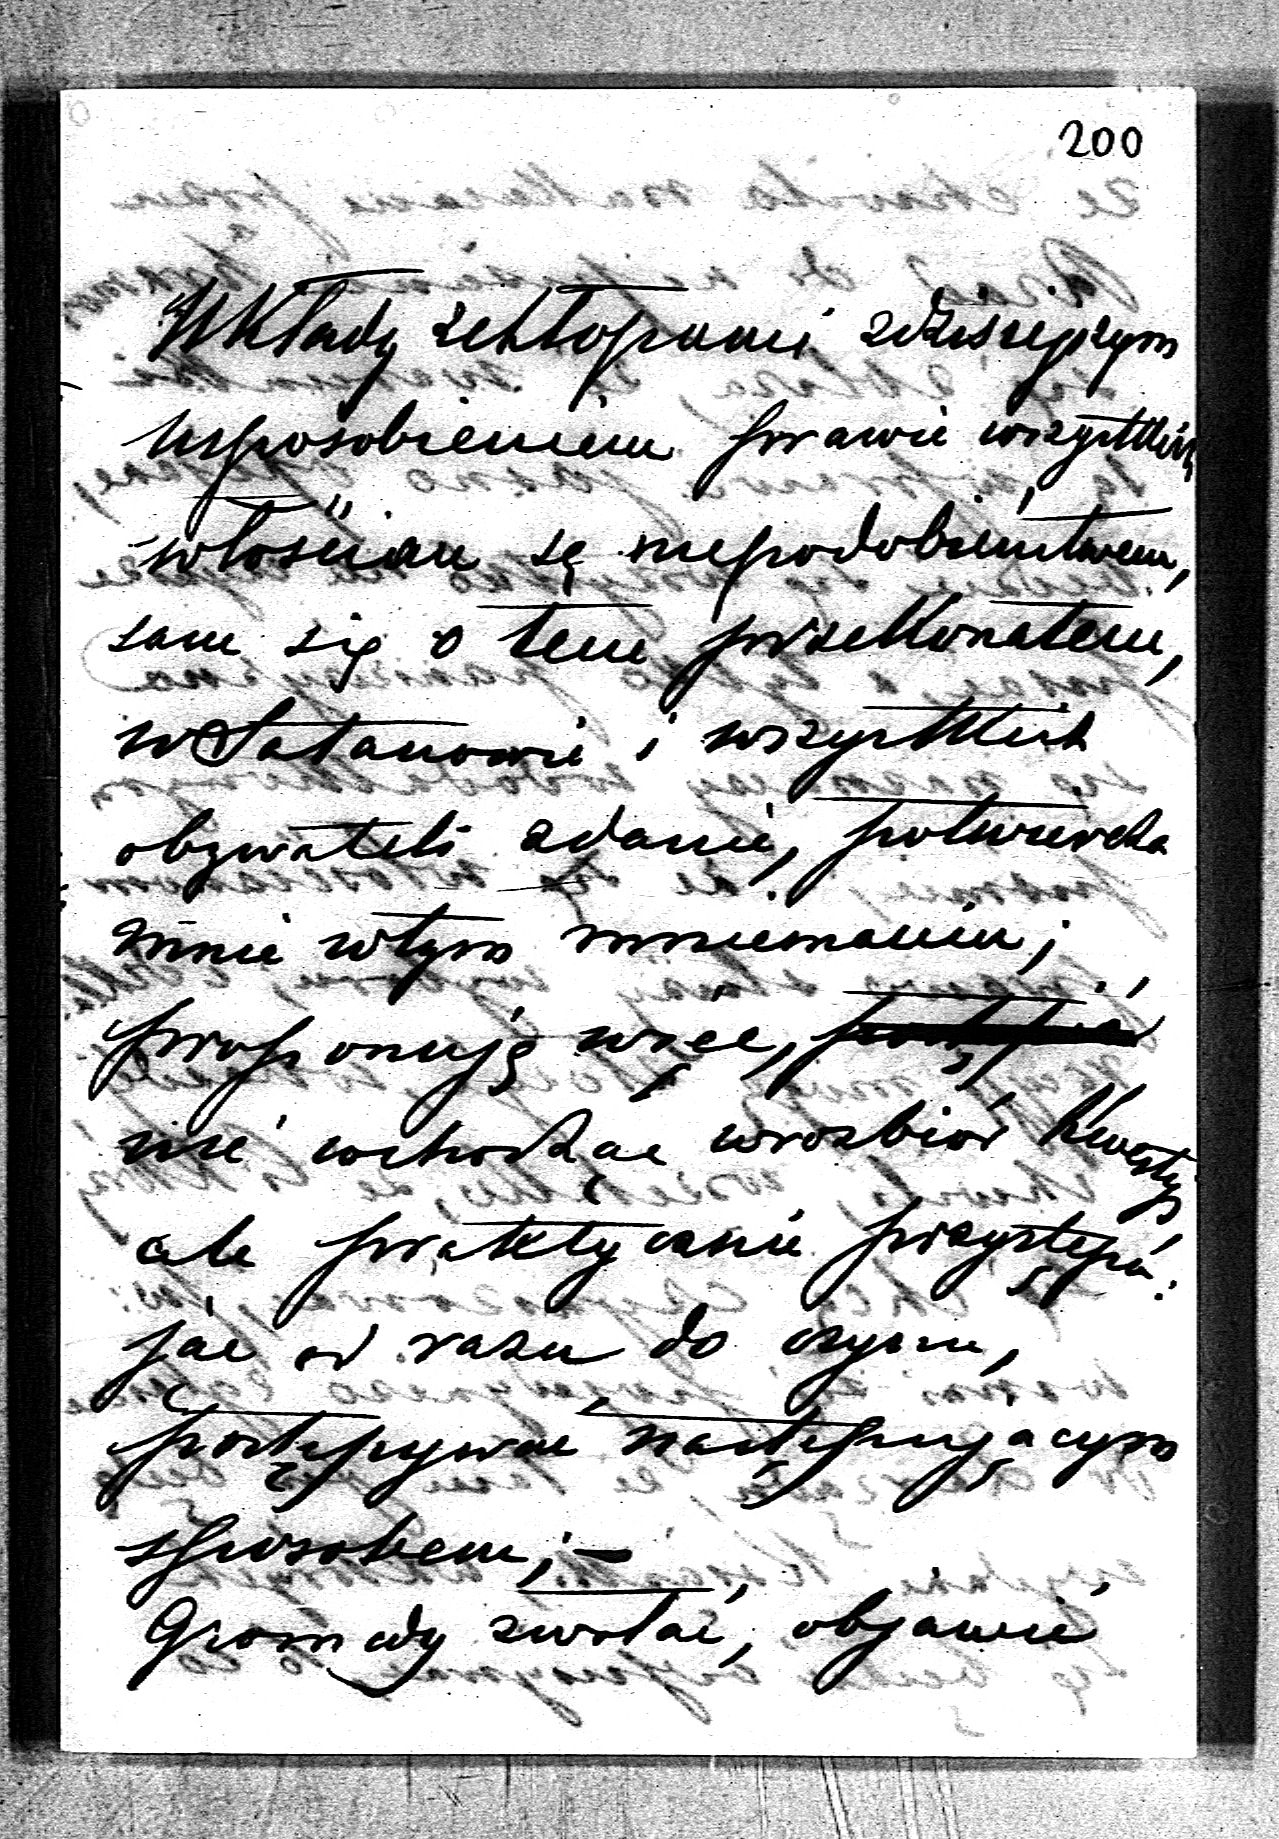 200
Układy z chłopami z dzisiejszym
usposobieniem prawie wszystkich
włościan są niepodobieństwem,
sam się o tem przekonałem,
w Satanowie i wszystkich
obywateli zdanie, potwierdza
mnie w tym mniemaniu;
proponuję więc,
nie wchodząc w rozbiór kwestyj
ale praktycznie przystępu:
jąc od razu do czynu,
postępywać następującym
sposobem; —
Gromady zwołać, objawić